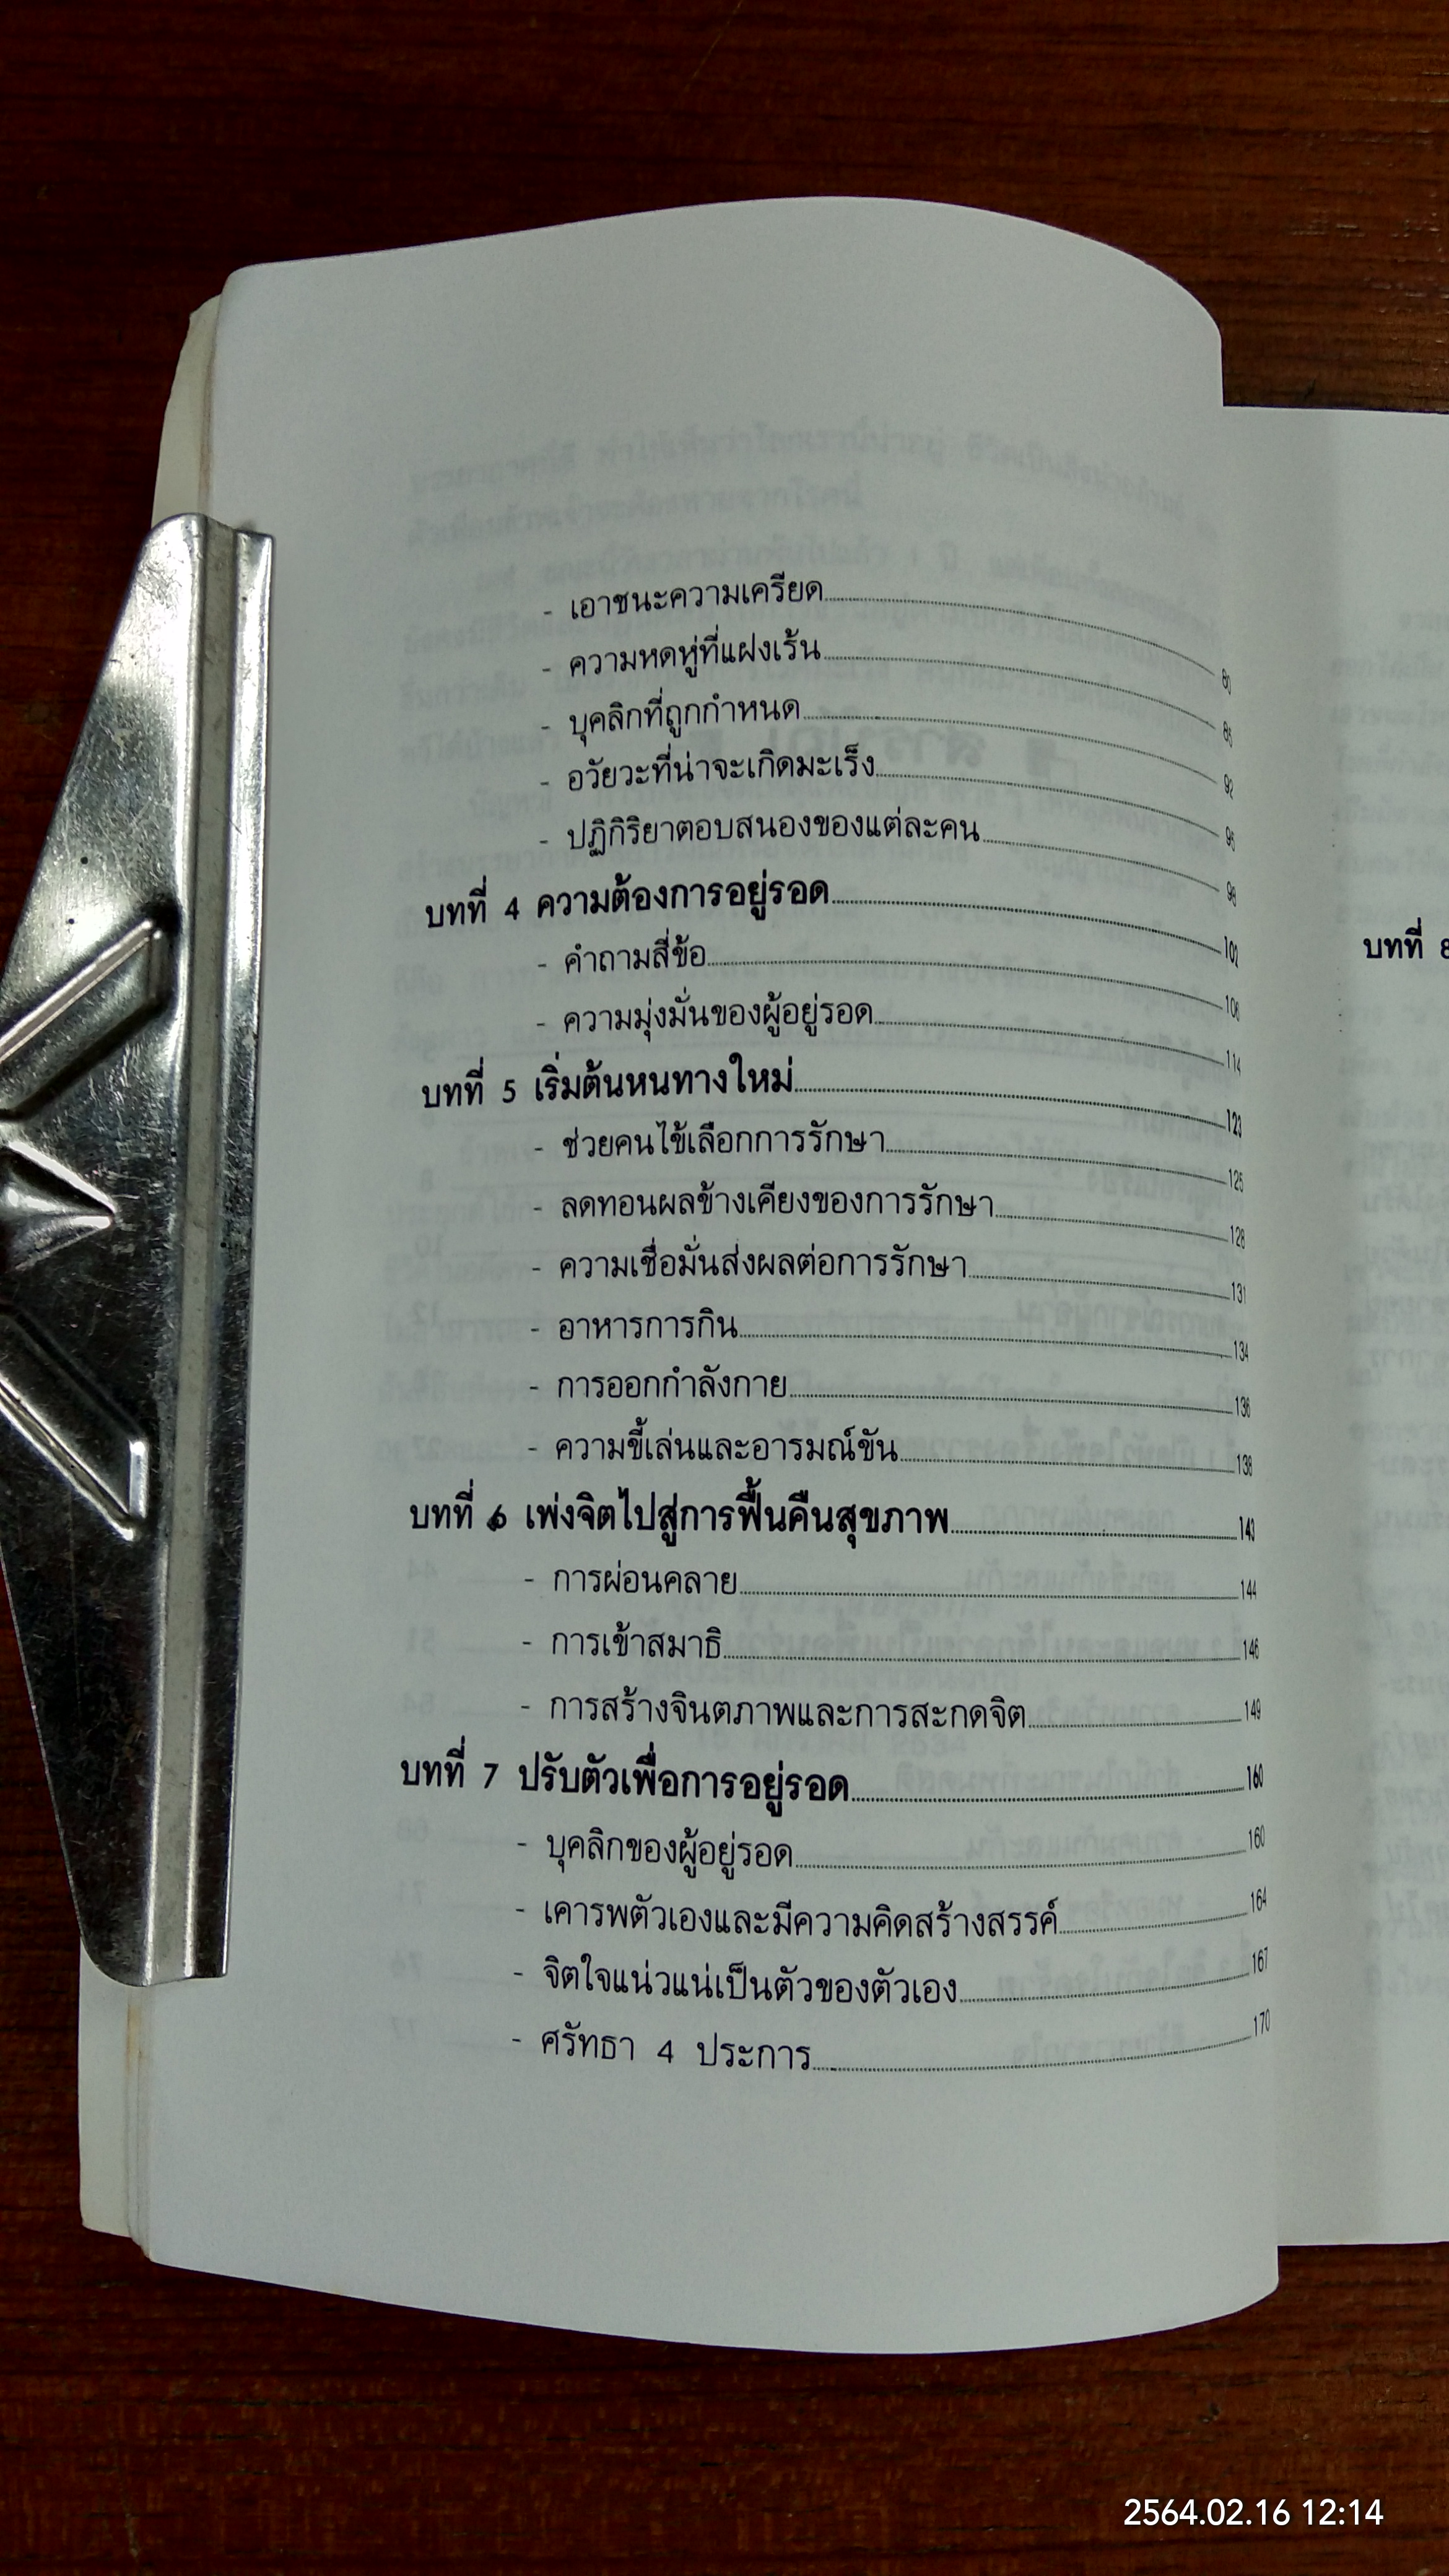 - เอาชนะความเครียด 80
- ความหดหู่ที่แฝงเร้น
- บุคลิกที่ถูกกำหนด 92
- อวัยวะที่น่าจะเกิดมะเร็ง
- ปฏิกิริยาตอบสนองของแต่ละคน 98
บทที่ 4 ความต้องการอยู่รอด 102
- คำถามสี่ข้อ
- ความมุ่งมั่นของผู้อยู่รอด 114
บทที่ 5 เริ่มต้นหนทางใหม่ 123
- ช่วยคนไข้เลือกการรักษา 125
- ลดทอนผลข้างเคียงของการรักษา 128
- ความเชื่อมั่นส่งผลต่อการรักษา 131
- อาหารการกิน 134
- การออกกำลังกาย 136
- ความขี้เล่นและอารมณ์ขัน 138
บทที่ 6 เพ่งจิตไปสู่การฟื้นคืนสุขภาพ 143
- การผ่อนคลาย 144
- การเข้าสมาธิ 146
- การสร้างจินตภาพและการสะกดจิต 149
บทที่ 7 ปรับตัวเพื่อการอยู่รอด 160
- บุคลิกของผู้อยู่รอด 160
- เคารพตัวเองและมีความคิดสร้างสรรค์ 164
- จิตใจแน่วแน่เป็นตัวของตัวเอง 167
- ศรัทธา 4 ประการ 170
บทที่ 8
2564.02.16 12:14